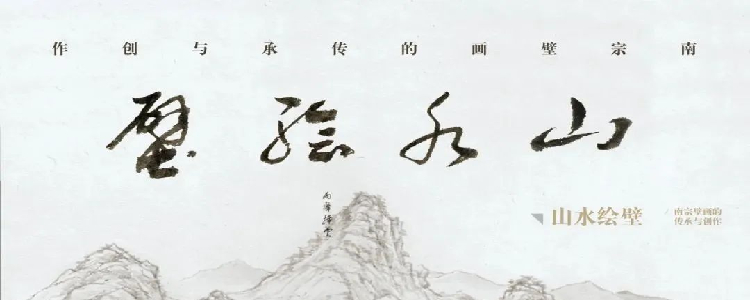 南宗壁画的传承与创作
山水绘壁
山水绘壁
南宗壁画的
传承与创作